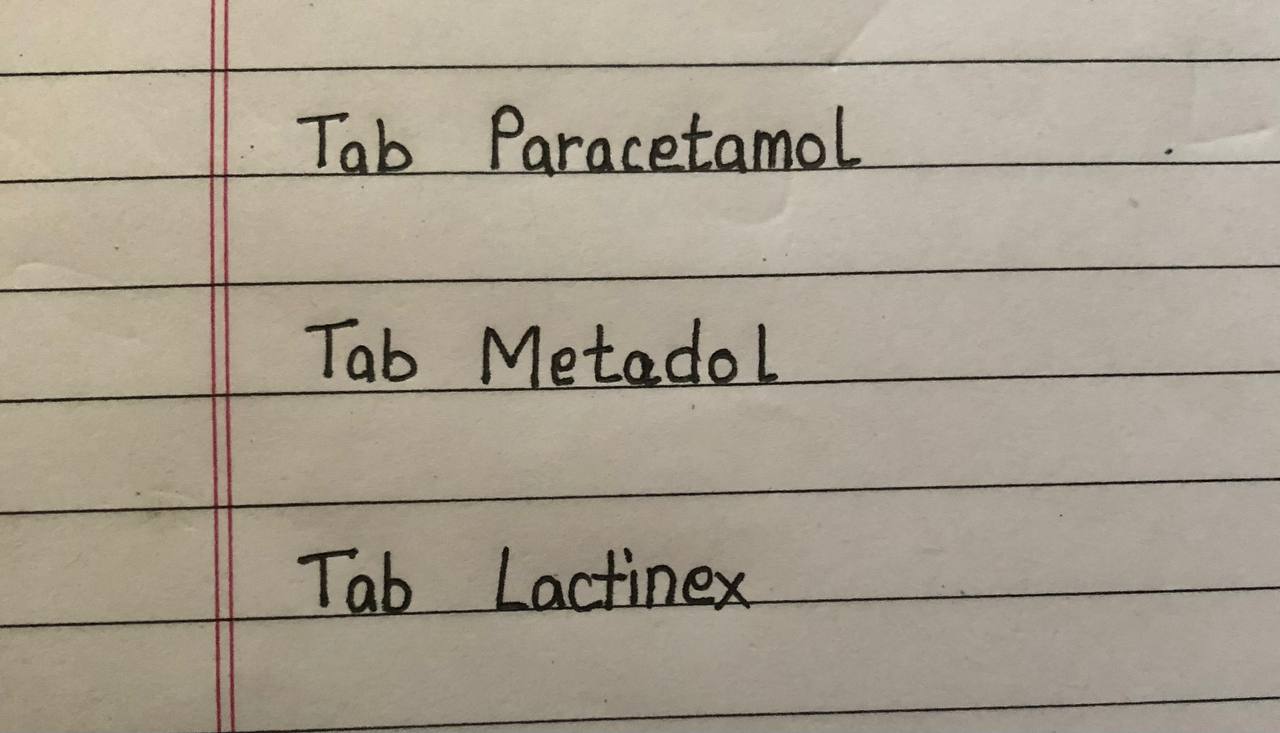 Tab Paracetamol
Tab Metadol
Tab Lactinex